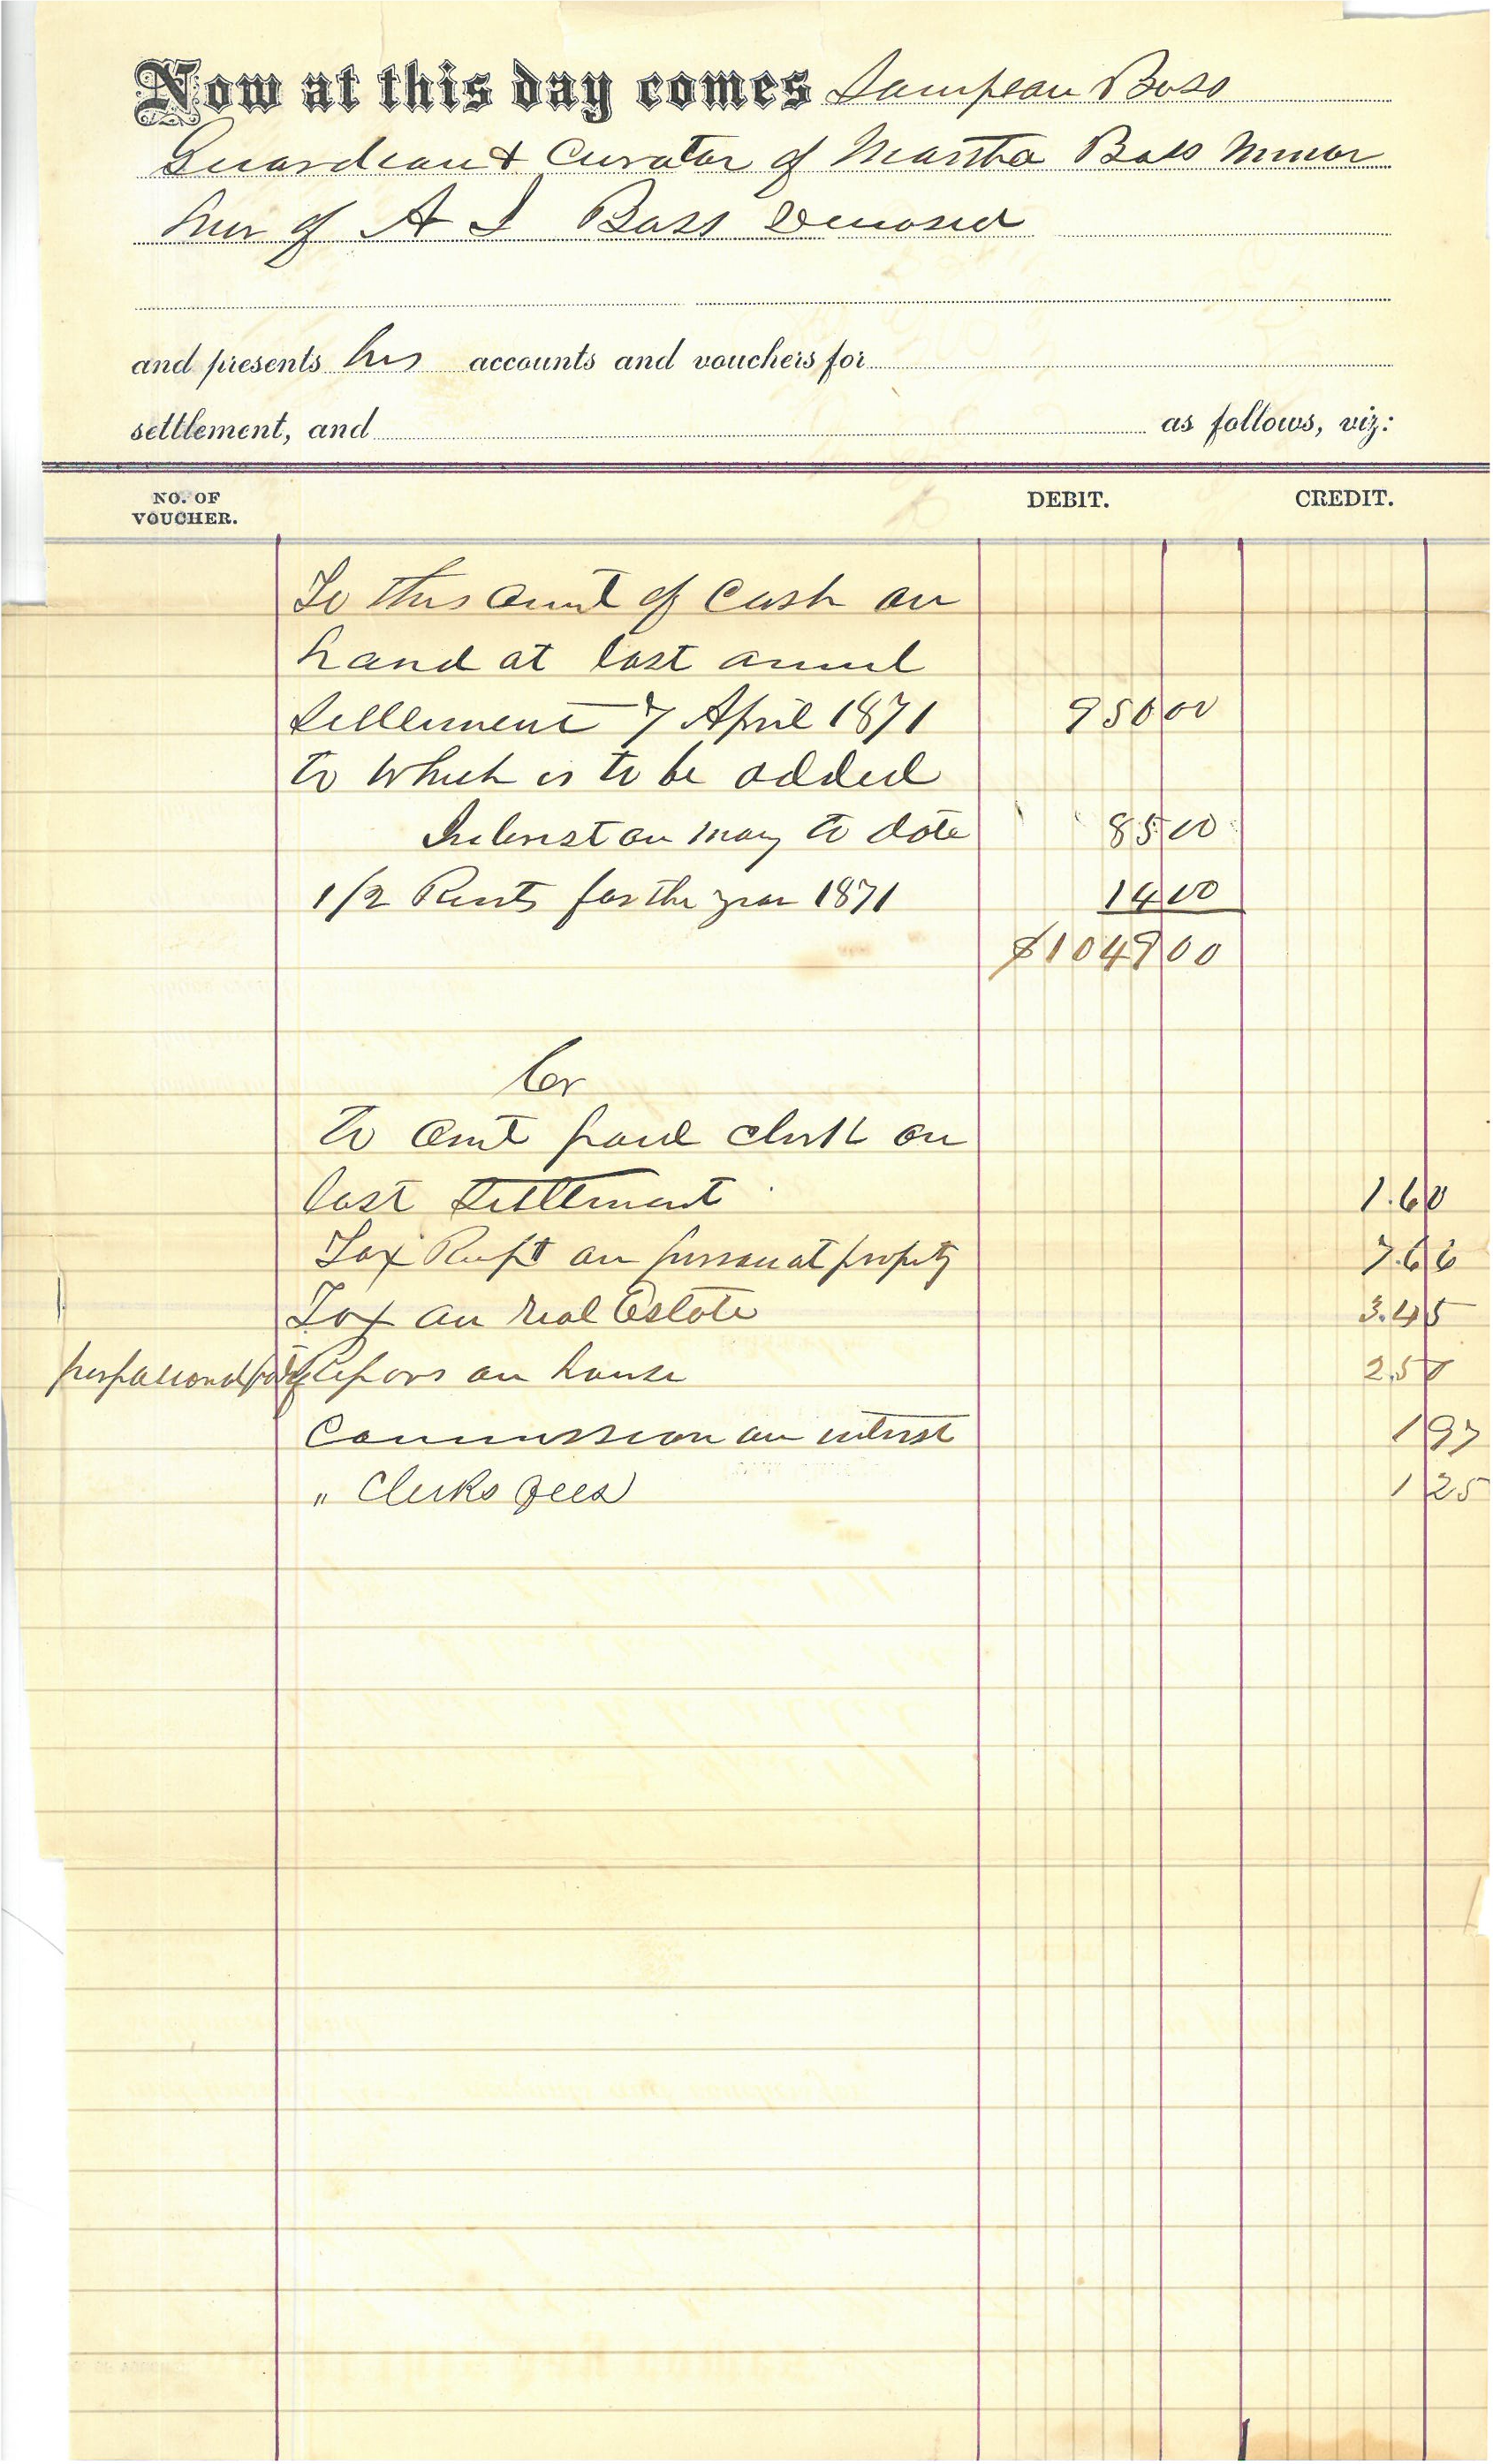 Now at this day comes Sampson Bass
Guardian & Curator of Martha Bass Minor
heir of A J Bass Deceased
and presents his accounts and vouchers for
settlement, and as follows, viz:
NO. OF VOUCHER. DEBIT. CREDIT.
To this amt of Cash on
hand at last annul
Settlement 7 April 1871 950 00
to which is to be added
Interest on mony to date 85 00
1/2 Rents for the year 1871 14 00
$1049 00
Cr
To amt paid clerk on
last Settlement 1.60
Tax Rept on personal property 7.66
1 Tax on real Estate 3.45
Repairs on house 2.50
Commission on interest 1 97
" Clerks fees 1 25